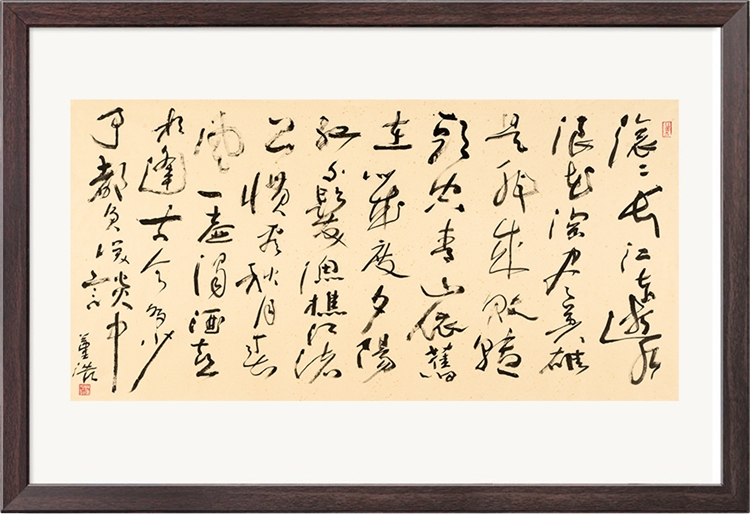 滚〻长江东逝水
浪花淘尽英雄
是非成败转
头空青山依舊
在几度夕陽
红白髮渔樵江渚
上惯看秋月春
风一壶濁酒喜
相逢古今多少
事都付笑谈中
董浩